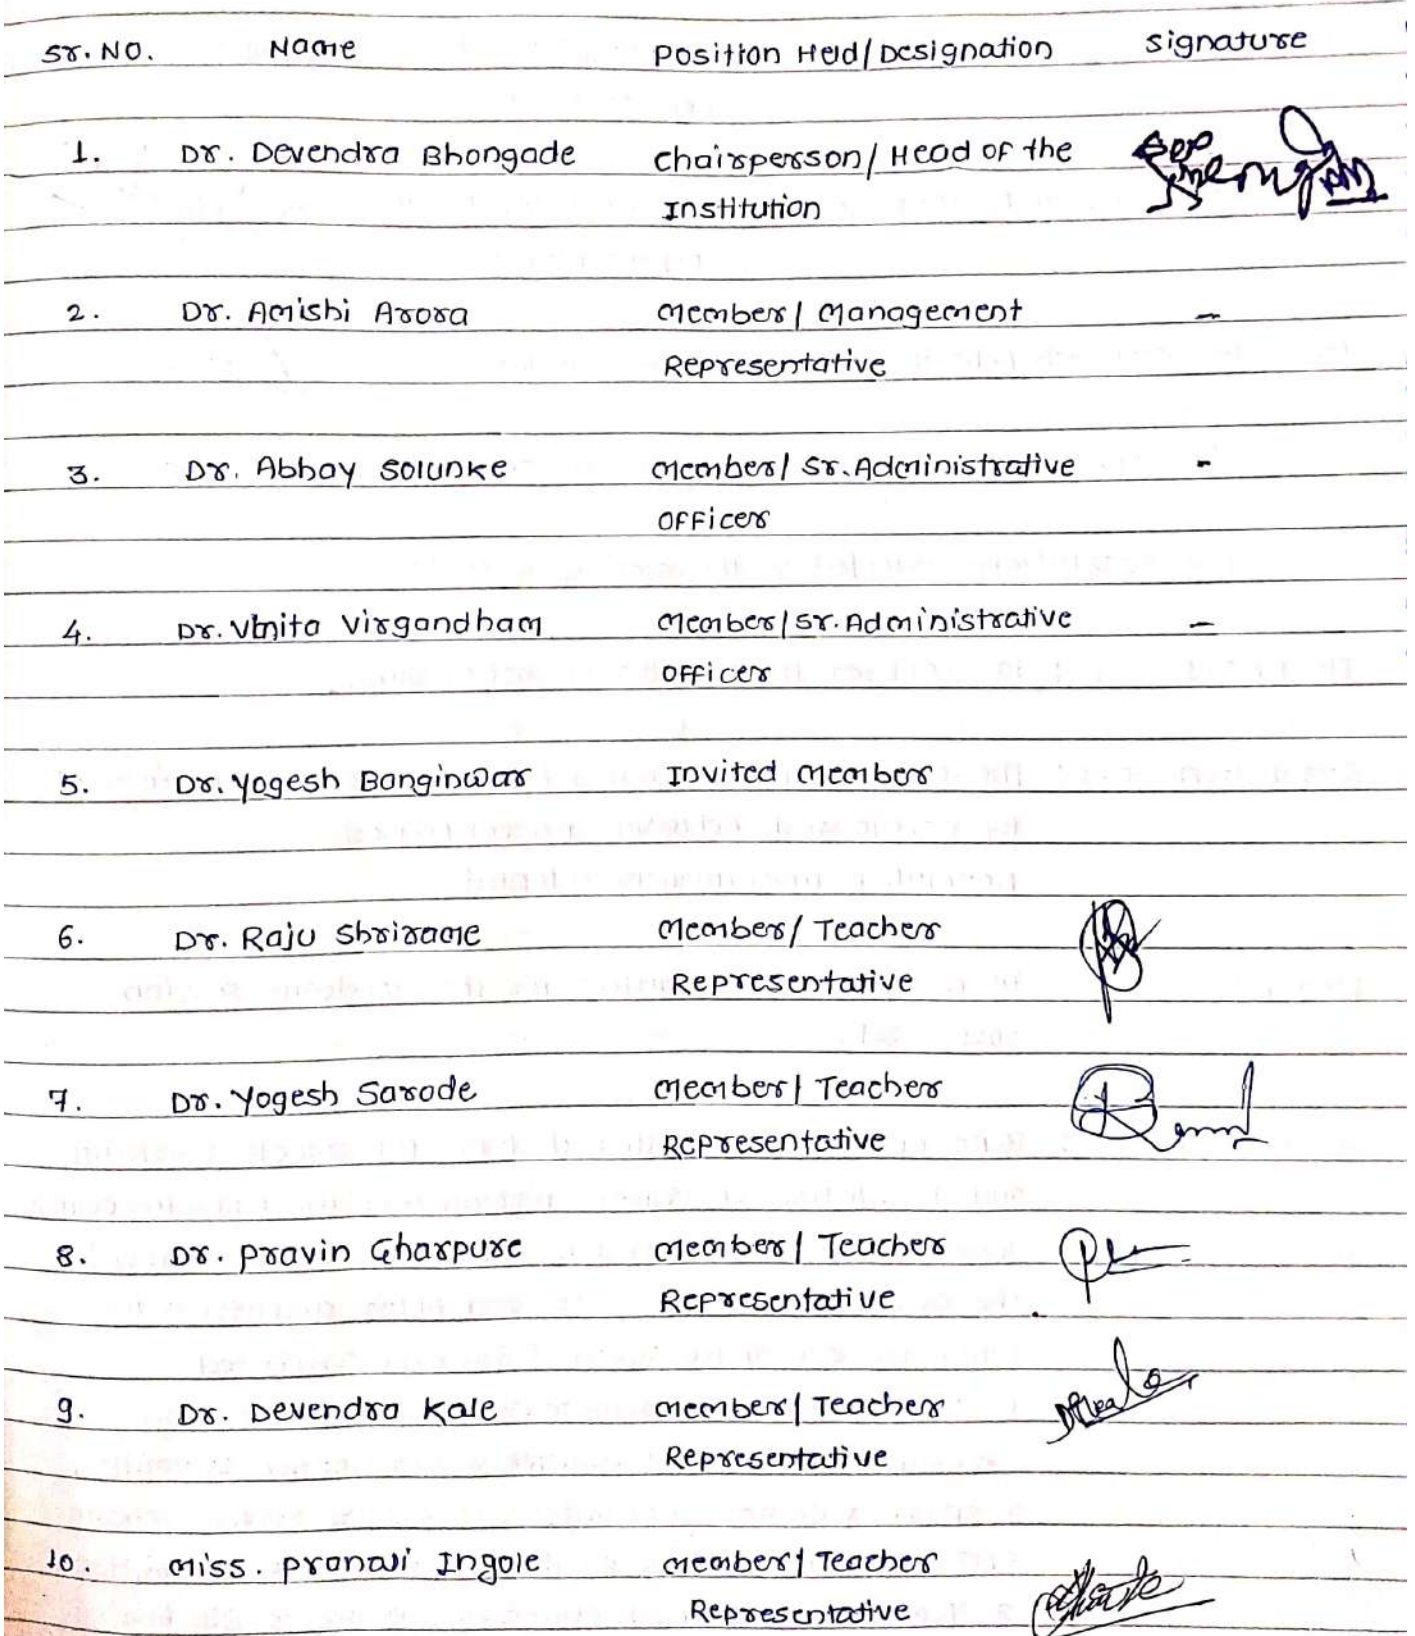 Sr. No. Name Position Held/Designation Signature
1. Dr. Devendra Bhongade Chairperson/Head of the
Institution
2. Dr. Amishi Arora Member/Management -
Representative
3. Dr. Abhay Solunke Member/Sr. Administrative -
Officer
4. Dr. Vinita Virgandham Member/Sr. Administrative -
Officer
5. Dr. Yogesh Banginwar Invited Member
6. Dr. Raju Shrirame Member/Teacher
Representative
7. Dr. Yogesh Sarode Member/Teacher
Representative
8. Dr. Pravin Gharpure Member/Teacher
Representative
9. Dr. Devendra Kale Member/Teacher
Representative
10. Miss. Pranavi Ingole Member/Teacher
Representative